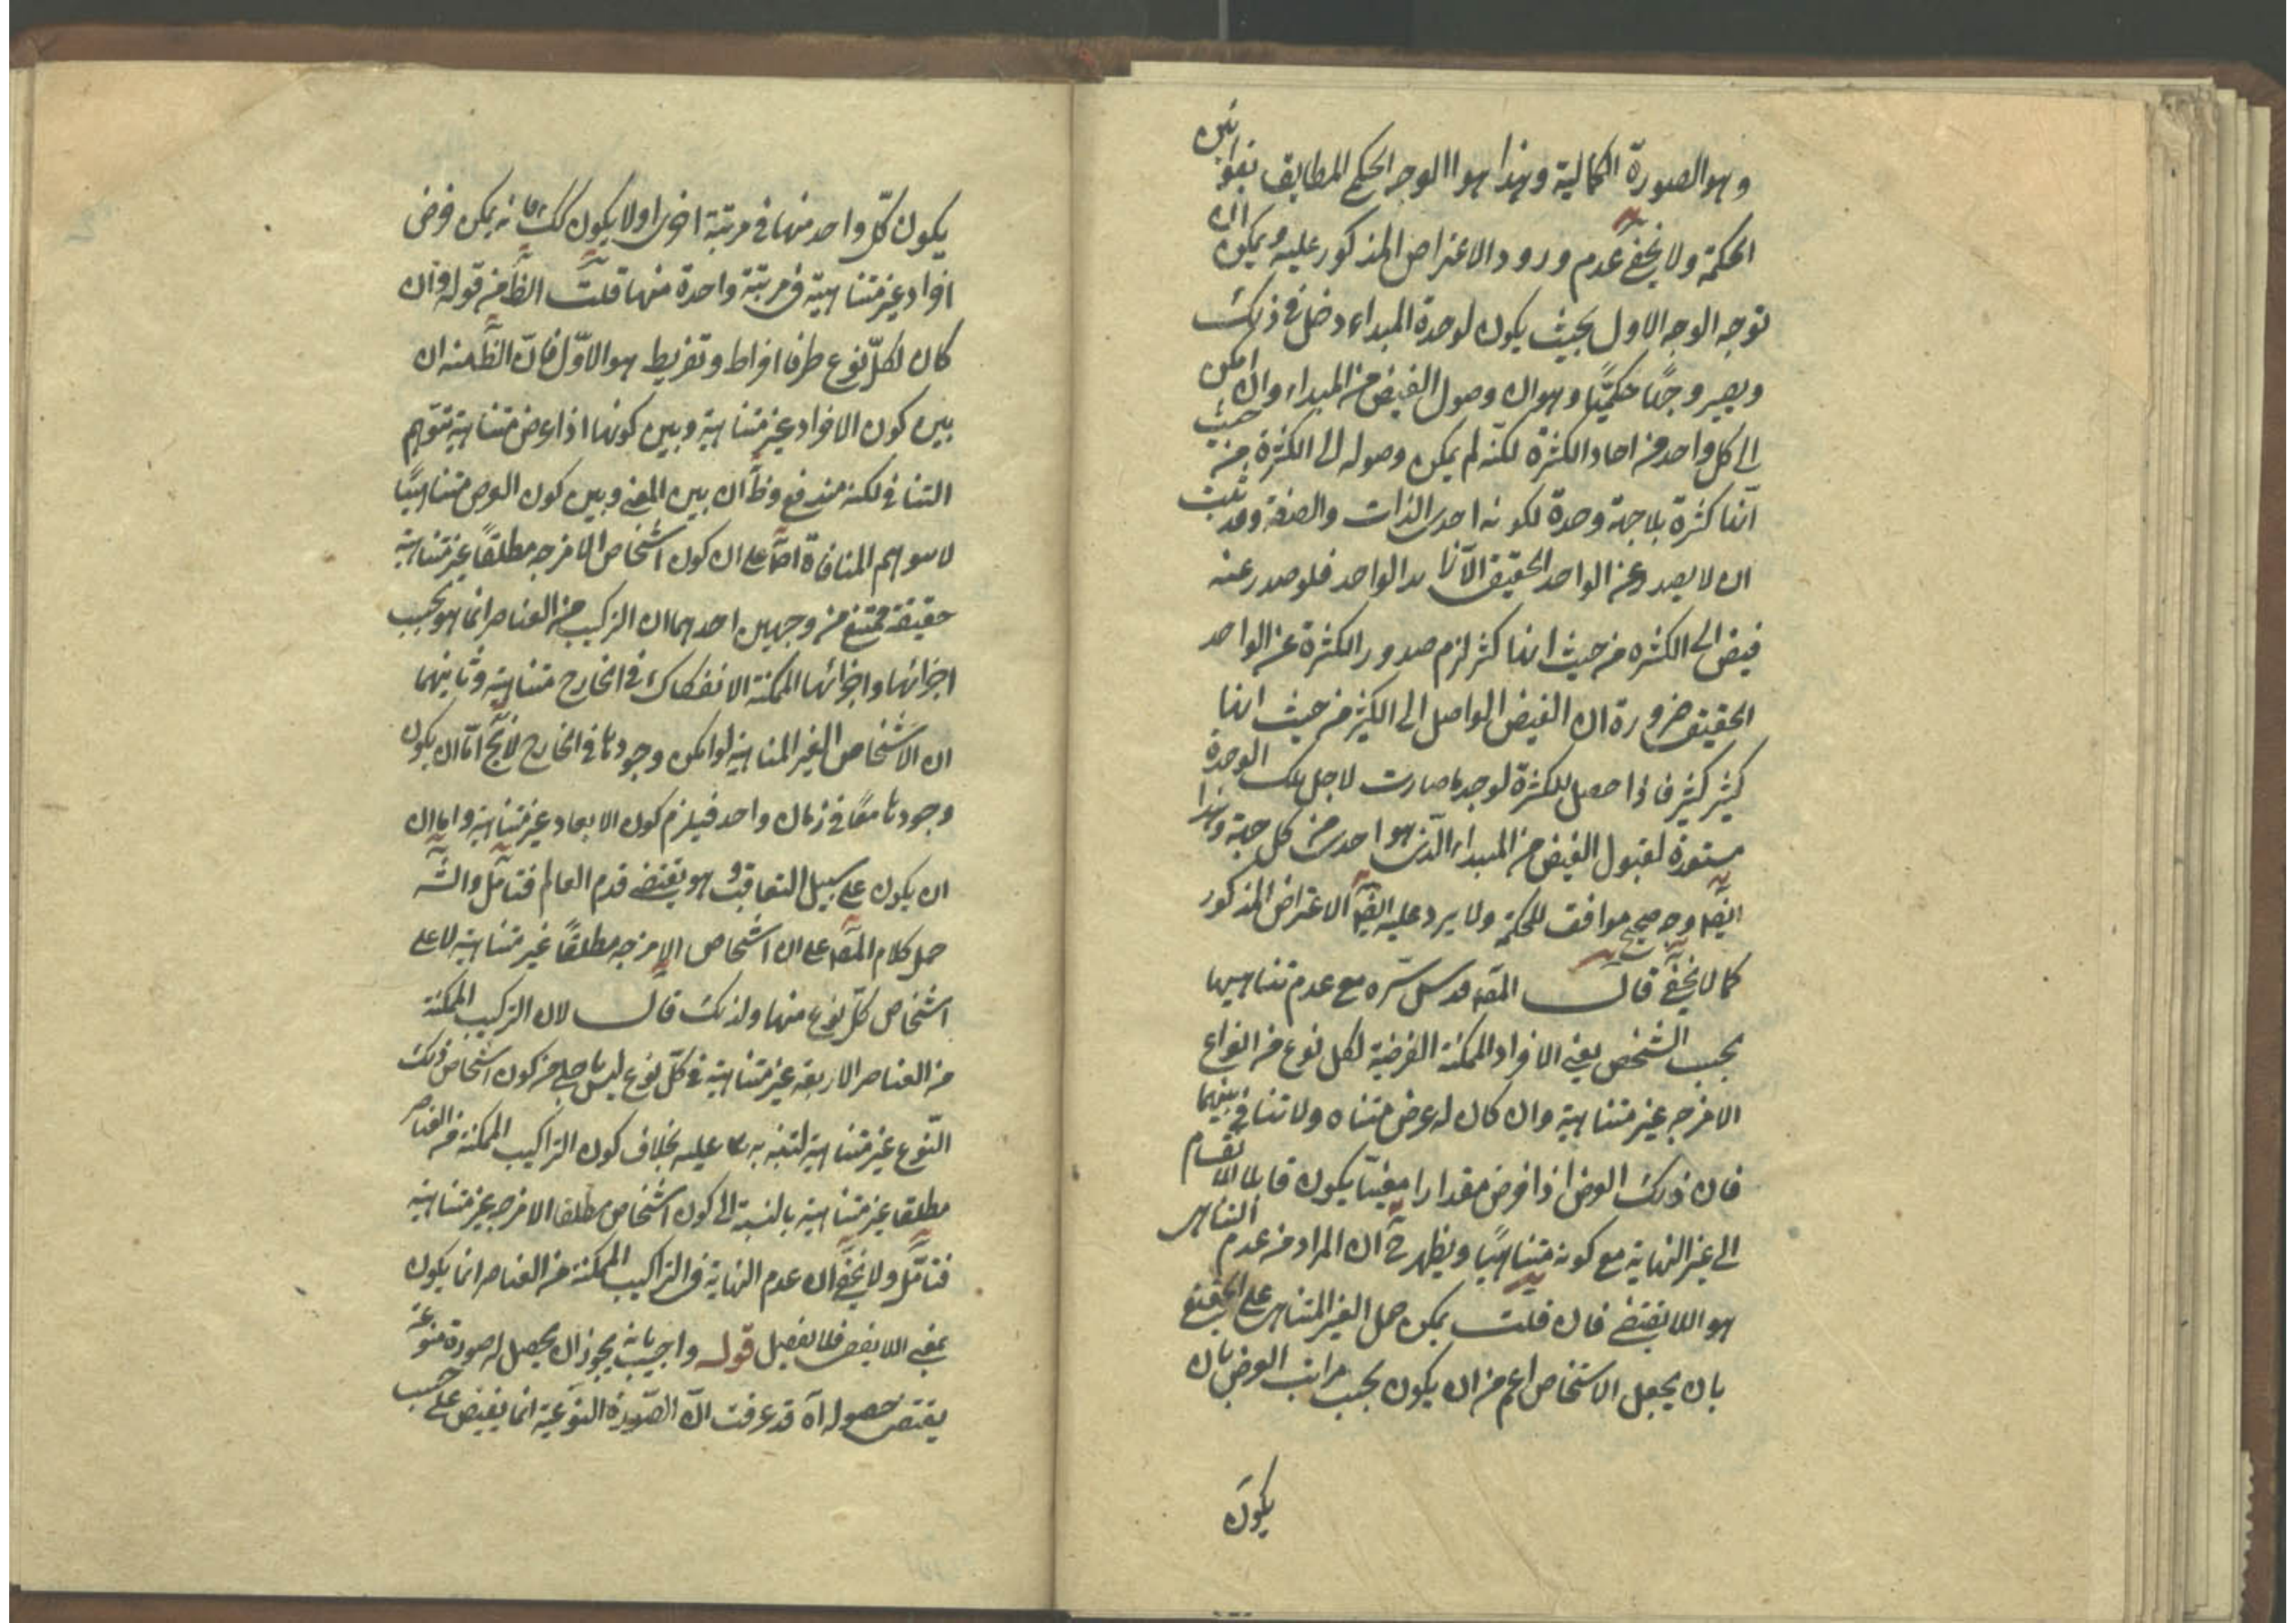 وهو الصورة الكمالية وهذا هو الوجه الحكم المطابق بقوانين
الحكمة ولا يخفى عدم ورود الاعتراض المذكور عليه ويمكن ان
توجه الوجه الاول بحيث يكون لوحدة المبداء دخل في ذلك
ويصير وجهًا حكميًّا وهو ان وصول الفيض من المبداء وان امكن
الى كل واحد من احاد الكثرة لكنّه لم يمكن وصوله الى الكثرة من حيث
انّها كثرة بلا جهة وحدة لكونه احدى الذات والصفة وقد ثبت
ان لا يصدر عن الواحد الحقيقى الّا الواحد فلو صدر عنه
فيض الى الكثره من حيث انها كثر لزم صدور الكثرة عن الواحد
الحقيقى ضرورة ان الفيض الواصل الى الكثير من حيث انها
كثير كثير فاذا حصل للكثرة لوحدة صارت لاجل تلك الوحدة
مستعدة لقبول الفيض من المبداء الّذى هو احدى من كل جهة وهذا
ايضا وجه صحيح موافق للحكمة ولا يرد عليه ايضا الاعتراض المذكور
كما لا يخفى قال المصـ قدس سرّه مع عدم تناهيها
بحسب الشخص يعنى الافراد الممكنة الفرضية لكل نوع من انواع
الامزجه غير متناهية وان كان له عرض متناه ولا تنافى بينهما
فان ذلك العرض اذا فرض مقدارا معيّنا يكون قابلا للانقسام
الى غير النهاية مع كونه متناهيًا ويظهر ح ان المراد من عدم التناهى
هو اللا يقتضى فان قلت يمكن حمل الغير المتناهى على الحقيقى
بان يجعل الاشخاص اعم من ان يكون بحسب مراتب العرض بان
يكون
يكون كلّ واحد منها فى مرتبة اخرى اولا يكون كك فانه يمكن فرض
افراد غير متناهية فى مرتبة واحدة منها قلت الظ من قوله وان
كان لكلّ نوع طرفا افراط وتفريط هو الاوّل فانّ الظ منه ان
بين كون الافراد غير متناهية وبين كونها اذا عرض متناهية يتوهم
التنافى لكنه مندفع وظ ان بين المعنى وبين كون العرض متناهيًا
لا يتوهم المنافاة اصلا على ان كون اشخاص الامزجه مطلقًا غير متناهية
حقيقة ممتنع من وجهين احدهما ان التركيب من العناصر انما هو بحسب
اجزائها واجزائها الممكنة الانفكاك فى الخارج متناهية وثانيهما
ان الاشخاص الغير المتناهية لو امكن وجودها فى الخارج لا يخ امّا ان يكون
وجودها معًا فى زمان واحد فيلزم كون الابعاد غير متناهية واما ان
ان يكون على سبيل التعاقب وهو يقتضى قدم العالم فتامّل والشه
حمل كلام المصـ على ان اشخاص الامزجه مطلقًا غير متناهية لا على
اشخاص كلّ نوع منها ولذلك قال لان التركيب الممكنة
من العناصر الاربعه غير متناهية فى كلّ نوع ليس باجلى من كون اشخاص ذلك
النّوع غير متناهية لتنبه به عليه بخلاف كون التراكيب الممكنة من العناصر
مطلقا غير متناهية بالنسبة الى كون اشخاص مطلقا الامزجه غير متناهية
فتامّل ولا يخفى ان عدم النهاية فى التراكيب الممكنة من العناصر انما يكون
بمعنى اللا يقف فلا تغفل قوله واجيب بانه يجوز ان يحصل له صورة منوعة
يقتضى حصوله آه قد عرفت انّ الصّورة النوعية انما يفيض على حسب